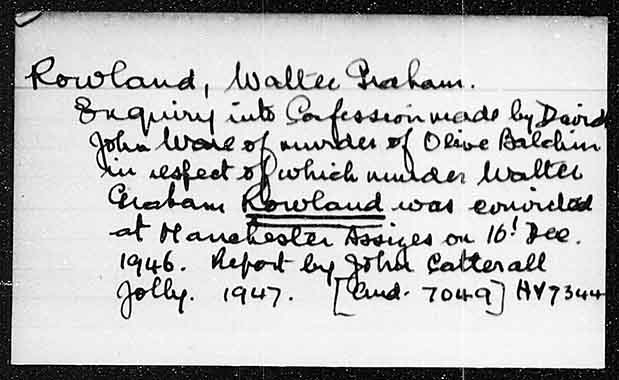 Rowland, Walter Graham.
Enquiry into Confession made by David
John Ware of murder of Olive Balchin
in respect of which murder Walter
Graham Rowland was convicted
at Manchester Assizes on 16! Dec.
1946. Report by John Catterall
Jolly. 1947. [Cmd. 7049] HV7344